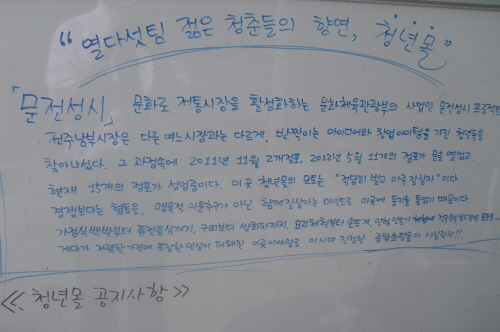 “열다섯팀 젊은 청춘들의 향연, 청년몰”
「문전성시」 문화로 전통시장을 활성화하는 문화체육관광부의 사업인 문전성시 프로젝트
전주남부시장은 다른 여느시장과는 다르게, 반짝이는 아이디어와 창업아이템을 가진 청년들을
찾아나섰다. 그 과정속에 2011년 11월 2개점포, 2012년 5월 11개의 점포가 문을 열었고
현재 15개의 점포가 성업중이다. 이곳 청년몰의 모토는 "적당히 벌고 아주 잘살자" 이다
경쟁보다는 협동을, 이윤추구가 아닌 함께 잘살자는 마인드로 이곳에 둥지를 틀었기 때문이다.
가정식백반부터 퓨전음식까지, 커피부터 쌍화차까지,
게다가 저렴한가격에 푸짐한인심이 더해진 이곳이야말로 이시대 진정한 종합쇼핑몰이 아닐런지!!
<<. 청년몰 공지사항 >>